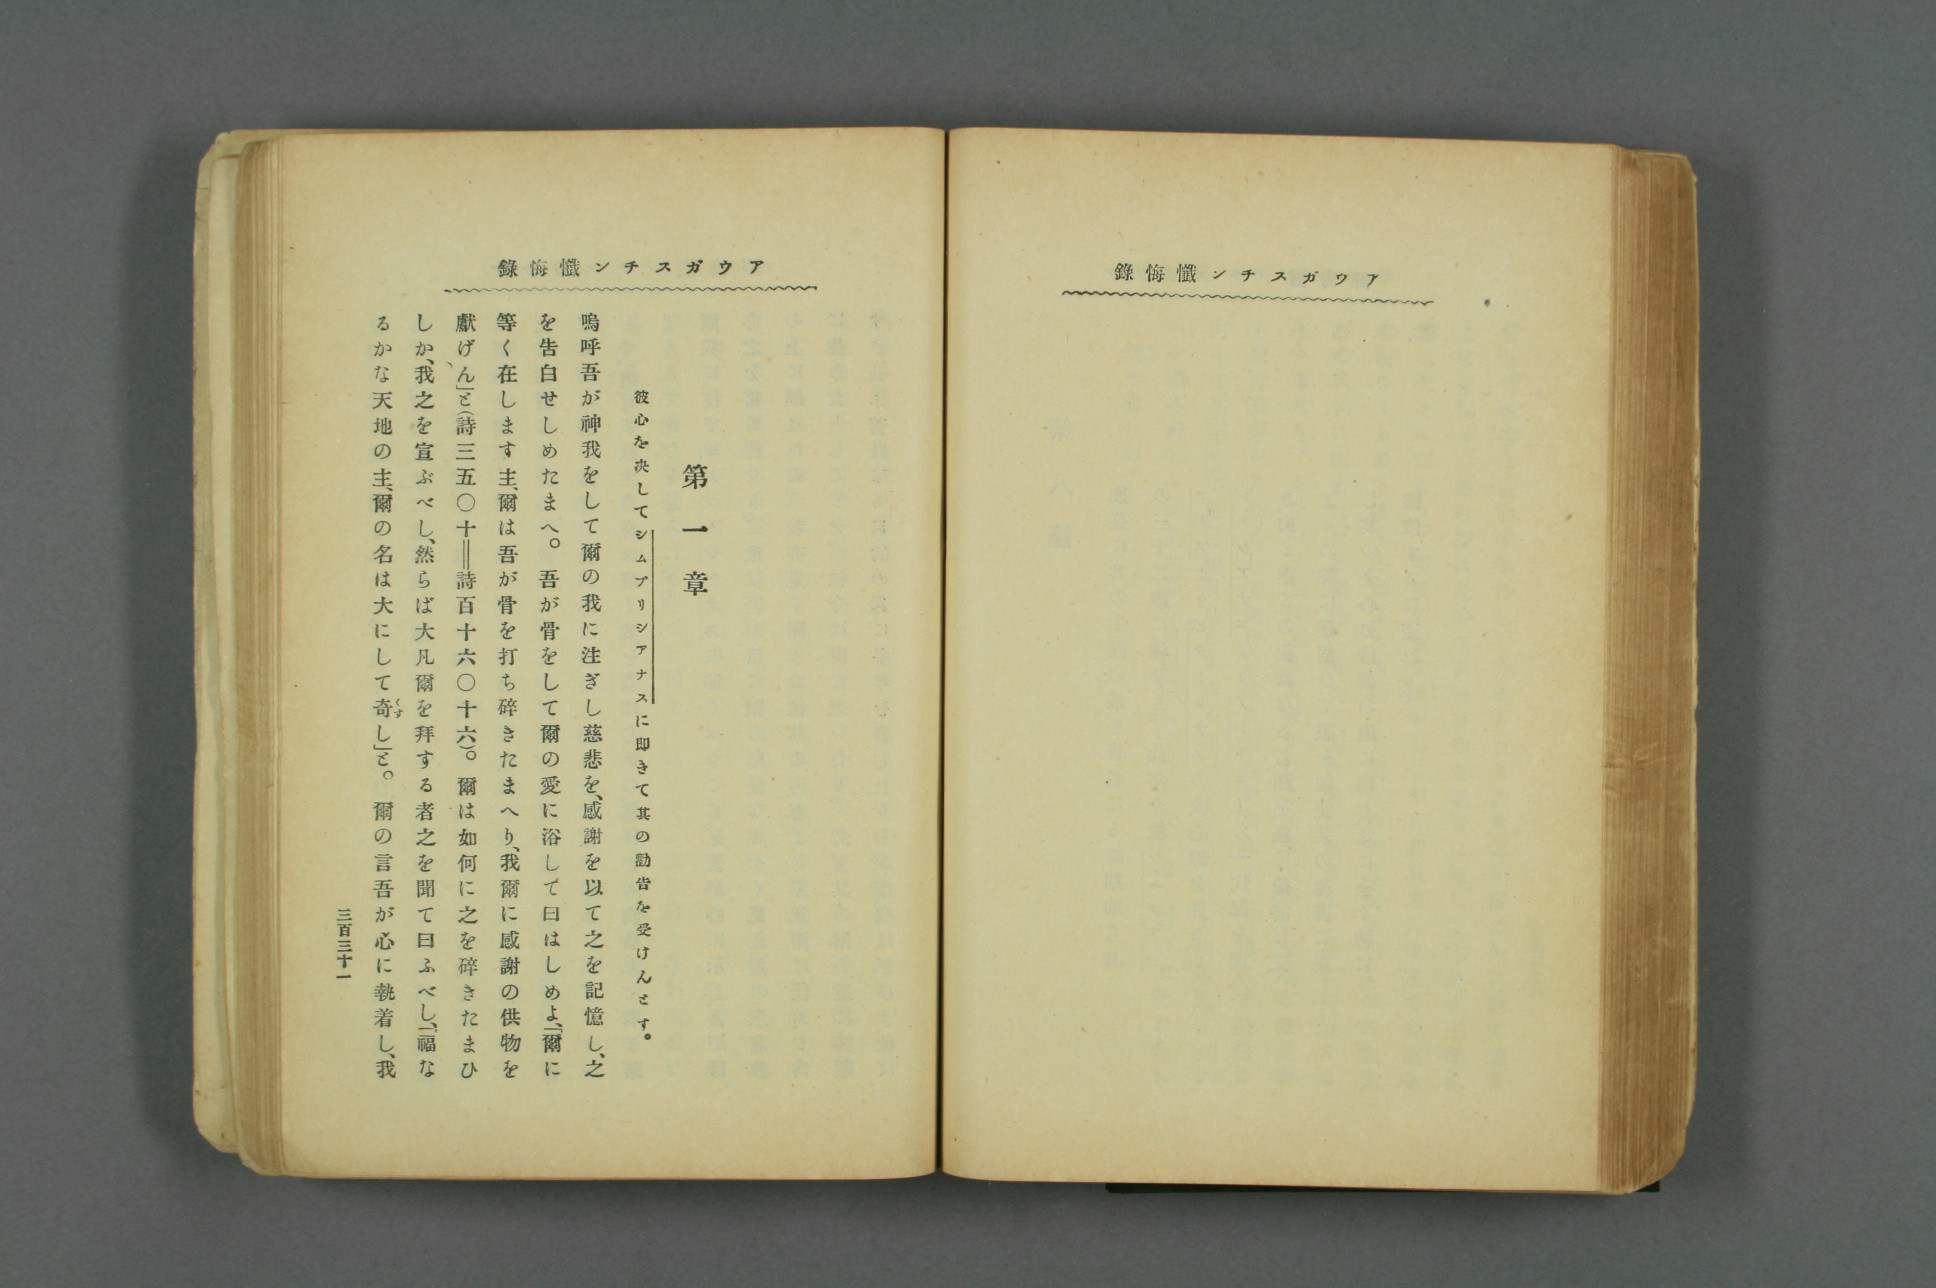 アウガスチン懺悔錄
アウガスチン懺悔錄
第一章
彼心を决してシムプリシアナスに即きて其の勸告を受けんとす。
嗚呼吾が神我をして爾の我に注ぎし慈悲を、感謝を以て之を記憶し、之
を告白せしめたまへ。吾が骨をして爾の愛に浴して曰はしめよ、「爾に
等く在します主、爾は吾が骨を打ち碎きたまへり、我爾に感謝の供物を
獻げん」と(詩三五〇十＝詩百十六〇十六)。爾は如何に之を碎きたまひ
しか、我之を宣ぶべし、然らば大凡爾を拜する者之を聞て曰ふべし、「福な
るかな天地の主、爾の名は大にして奇くすし」と。爾の言吾が心に執着し、我
三百三十一